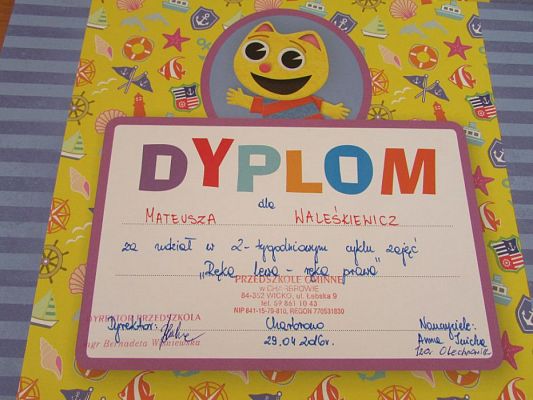 DYPLOM
dla
MATEUSZA WALEŚKIEWICZ
za udział w 2-tygodniowym cyklu zajęć
„Ręka lewa – ręka prawa"
PRZEDSZKOLE GMINNE
w CHARBROWIE
84-352 WICKO, ul. Łebska 9
tel. 59 861 10 43
NIP 841-15-79-810, REGON 770531830
DYREKTOR PRZEDSZKOLA
Dyrektor:
mgr Bernadeta Wiśniewska
Charbrowo
29.04 2016r.
Nauczyciele:
Anna
Iza Olechnowicz